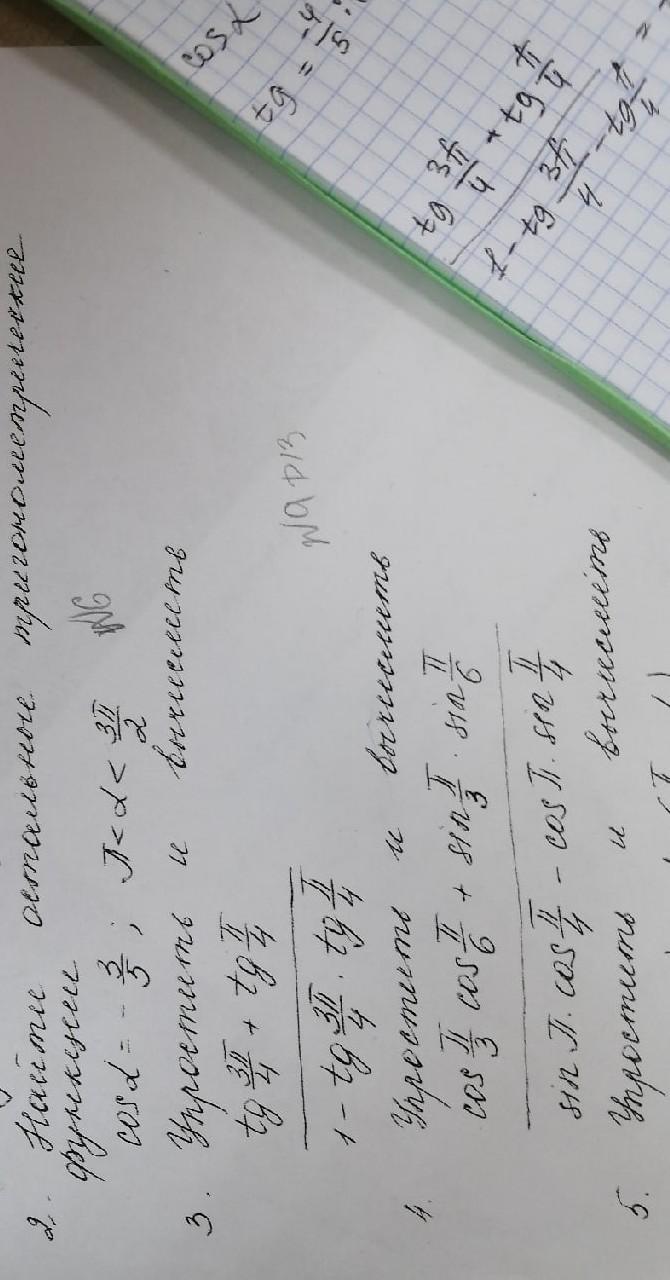 2. Найти остальные тригонометрические
функции
cos α = - 3/5 ; π < α < 3π/2 №6
3. Упростить и вычислить
tg 3π/4 + tg π/4
1 - tg 3π/4 · tg π/4
4. Упростить и вычислить
cos π/3 cos π/6 + sin π/3 · sin π/6
sin π · cos π/4 - cos π · sin π/4
5. Упростить и вычислить
cos α
tg = -4/5 :
tg 3π/4 + tg π/4
1 - tg 3π/4 - tg π/4 =